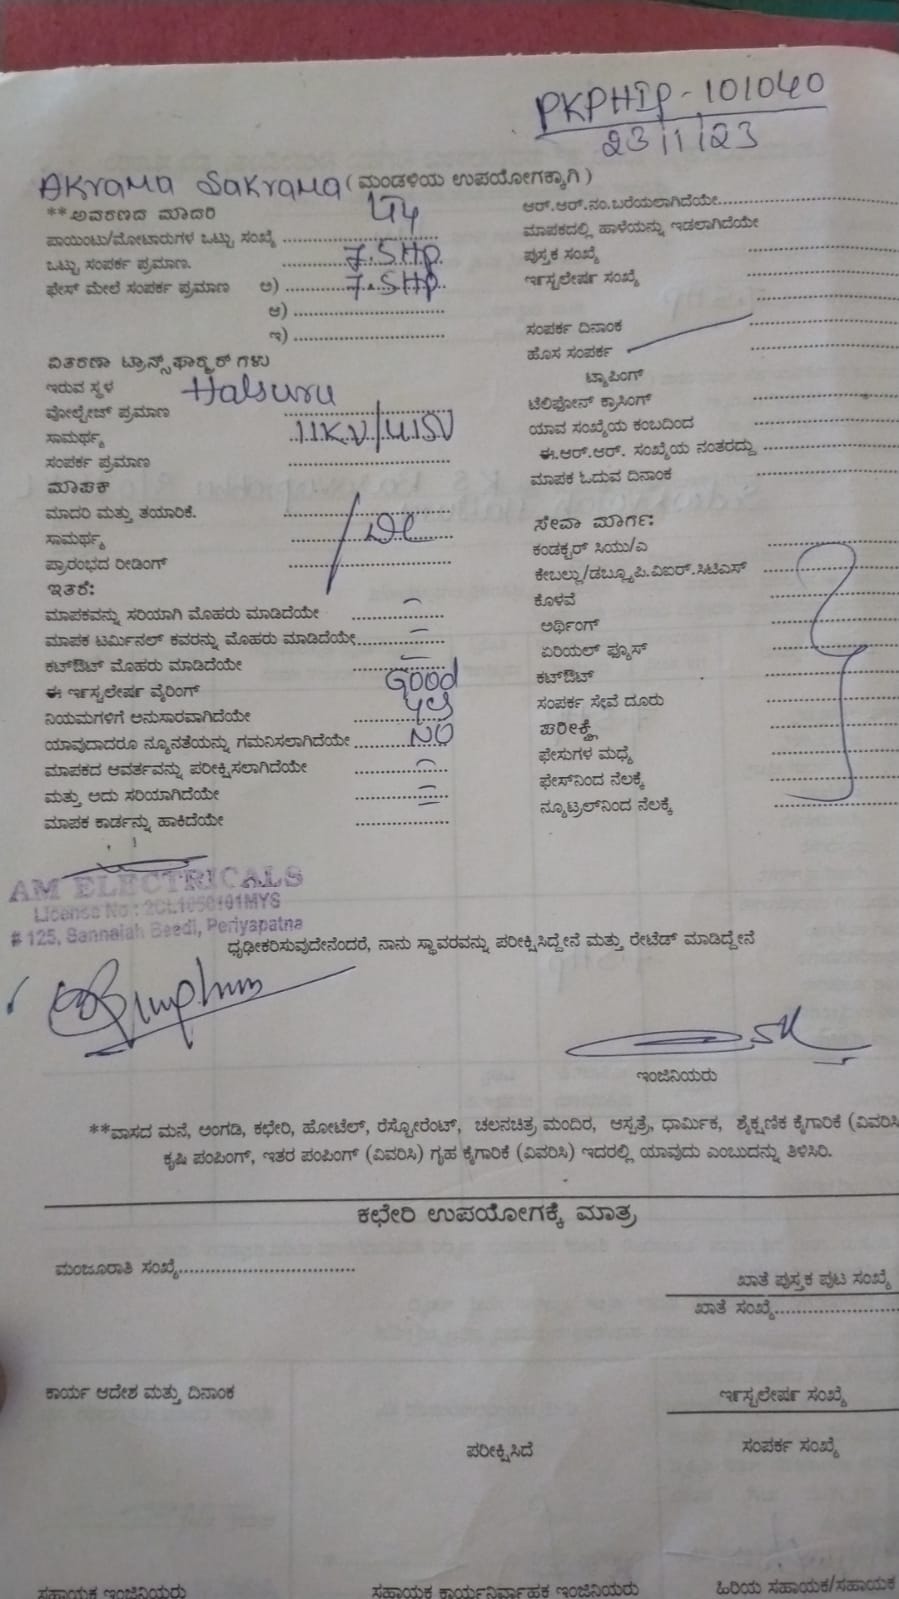 PKPHIP-101040
23/1/23
AKrama Sakrama (ಮಂಡಳಿಯ ಉಪಯೋಗಕ್ಕಾಗಿ)
**ಅವರಣದ ಮಾದರಿ
ಪಾಯಿಂಟು/ಮೋಟಾರುಗಳ ಒಟ್ಟು ಸಂಖ್ಯೆ ..............
ಒಟ್ಟು ಸಂಪರ್ಕ ಪ್ರಮಾಣ. 7.5HP
ಫೇಸ್ ಮೇಲೆ ಸಂಪರ್ಕ ಪ್ರಮಾಣ ಅ) 7.5HP
ಆ) ..............
ಇ) ..............
ವಿತರಣಾ ಟ್ರಾನ್ಸ್‌ಫಾರ್ಮರ್ ಗಳು
ಇರುವ ಸ್ಥಳ Halsuru
ವೋಲ್ಟೇಜ್ ಪ್ರಮಾಣ
ಸಾಮರ್ಥ್ಯ 11K.V/415V
ಸಂಪರ್ಕ ಪ್ರಮಾಣ ..............
ಮಾಪಕ
ಮಾದರಿ ಮತ್ತು ತಯಾರಿಕೆ. ..............
ಸಾಮರ್ಥ್ಯ ..............
ಪ್ರಾರಂಭದ ರೀಡಿಂಗ್ ..............
ಇತರೆ:
ಮಾಪಕವನ್ನು ಸರಿಯಾಗಿ ಮೊಹರು ಮಾಡಿದೆಯೇ ..............
ಮಾಪಕ ಟರ್ಮಿನಲ್ ಕವರನ್ನು ಮೊಹರು ಮಾಡಿದೆಯೇ..............
ಕಟ್‌ಔಟ್ ಮೊಹರು ಮಾಡಿದೆಯೇ ..............
ಈ ಇನ್‌ಸ್ಟಲೇಷನ್ ವೈರಿಂಗ್ Good
ನಿಯಮಗಳಿಗೆ ಅನುಸಾರವಾಗಿದೆಯೇ yes
ಯಾವುದಾದರೂ ನ್ಯೂನತೆಯನ್ನು ಗಮನಿಸಲಾಗಿದೆಯೇ NO
ಮಾಪಕದ ಆವರ್ತವನ್ನು ಪರೀಕ್ಷಿಸಲಾಗಿದೆಯೇ ..............
ಮತ್ತು ಅದು ಸರಿಯಾಗಿದೆಯೇ ..............
ಮಾಪಕ ಕಾರ್ಡನ್ನು ಹಾಕಿದೆಯೇ ..............
ಆರ್.ಆರ್.ನಂ.ಬರೆಯಲಾಗಿದೆಯೇ..............
ಮಾಪಕದಲ್ಲಿ ಹಾಳೆಯನ್ನು ಇಡಲಾಗಿದೆಯೇ
ಪುಸ್ತಕ ಸಂಖ್ಯೆ ..............
ಇನ್‌ಸ್ಟಲೇಷನ್ ಸಂಖ್ಯೆ ..............
ಸಂಪರ್ಕ ದಿನಾಂಕ ..............
ಹೊಸ ಸಂಪರ್ಕ ..............
ಟ್ಯಾಪಿಂಗ್
ಟೆಲಿಫೋನ್ ಕ್ರಾಸಿಂಗ್ ..............
ಯಾವ ಸಂಖ್ಯೆಯ ಕಂಬದಿಂದ ..............
ಈ.ಆರ್.ಆರ್. ಸಂಖ್ಯೆಯ ನಂತರದ್ದು ..............
ಮಾಪಕ ಓದುವ ದಿನಾಂಕ ..............
ಸೇವಾ ಮಾರ್ಗ:
ಕಂಡಕ್ಟರ್ ಸಿಯು/ಎ ..............
ಕೇಬಲ್ಲು/ಡಬ್ಲ್ಯೂ.ಪಿ.ವಿಐರ್.ಸಿಟಿಎಸ್ ..............
ಕೊಳವೆ ..............
ಅರ್ಥಿಂಗ್ ..............
ಏರಿಯಲ್ ಫ್ಯೂಸ್ ..............
ಕಟ್‌ಔಟ್ ..............
ಸಂಪರ್ಕ ಸೇವೆ ದೂರು ..............
ಪರೀಕ್ಷೆ
ಫೇಸುಗಳ ಮಧ್ಯೆ ..............
ಫೇಸ್‌ನಿಂದ ನೆಲಕ್ಕೆ ..............
ನ್ಯೂಟ್ರಲ್‌ನಿಂದ ನೆಲಕ್ಕೆ ..............
AM ELECTRICALS
License No : 2CL1050101MYS
# 125, Sannaiah Beedi, Periyapatna
ಧೃಢೀಕರಿಸುವುದೇನೆಂದರೆ, ನಾನು ಸ್ಥಾವರವನ್ನು ಪರೀಕ್ಷಿಸಿದ್ದೇನೆ ಮತ್ತು ರೇಟೆಡ್ ಮಾಡಿದ್ದೇನೆ
ಇಂಜಿನಿಯರು
**ವಾಸದ ಮನೆ, ಅಂಗಡಿ, ಕಛೇರಿ, ಹೋಟೆಲ್, ರೆಸ್ಟೋರೆಂಟ್, ಚಲನಚಿತ್ರ ಮಂದಿರ, ಆಸ್ಪತ್ರೆ, ಧಾರ್ಮಿಕ, ಶೈಕ್ಷಣಿಕ ಕೈಗಾರಿಕೆ (ವಿವರಿಸಿ
ಕೃಷಿ ಪಂಪಿಂಗ್, ಇತರ ಪಂಪಿಂಗ್ (ವಿವರಿಸಿ) ಗೃಹ ಕೈಗಾರಿಕೆ (ವಿವರಿಸಿ) ಇದರಲ್ಲಿ ಯಾವುದು ಎಂಬುದನ್ನು ತಿಳಿಸಿರಿ.
ಕಛೇರಿ ಉಪಯೋಗಕ್ಕೆ ಮಾತ್ರ
ಮಂಜೂರಾತಿ ಸಂಖ್ಯೆ..............
ಖಾತೆ ಪುಸ್ತಕ ಪುಟ ಸಂಖ್ಯೆ
ಖಾತೆ ಸಂಖ್ಯೆ..............
ಕಾರ್ಯ ಆದೇಶ ಮತ್ತು ದಿನಾಂಕ
ಇನ್‌ಸ್ಟಲೇಷನ್ ಸಂಖ್ಯೆ
ಪರೀಕ್ಷಿಸಿದೆ
ಸಂಪರ್ಕ ಸಂಖ್ಯೆ
ಸಹಾಯಕ ಇಂಜಿನಿಯರು
ಸಹಾಯಕ ಕಾರ್ಯನಿರ್ವಾಹಕ ಇಂಜಿನಿಯರು
ಹಿರಿಯ ಸಹಾಯಕ/ಸಹಾಯಕ